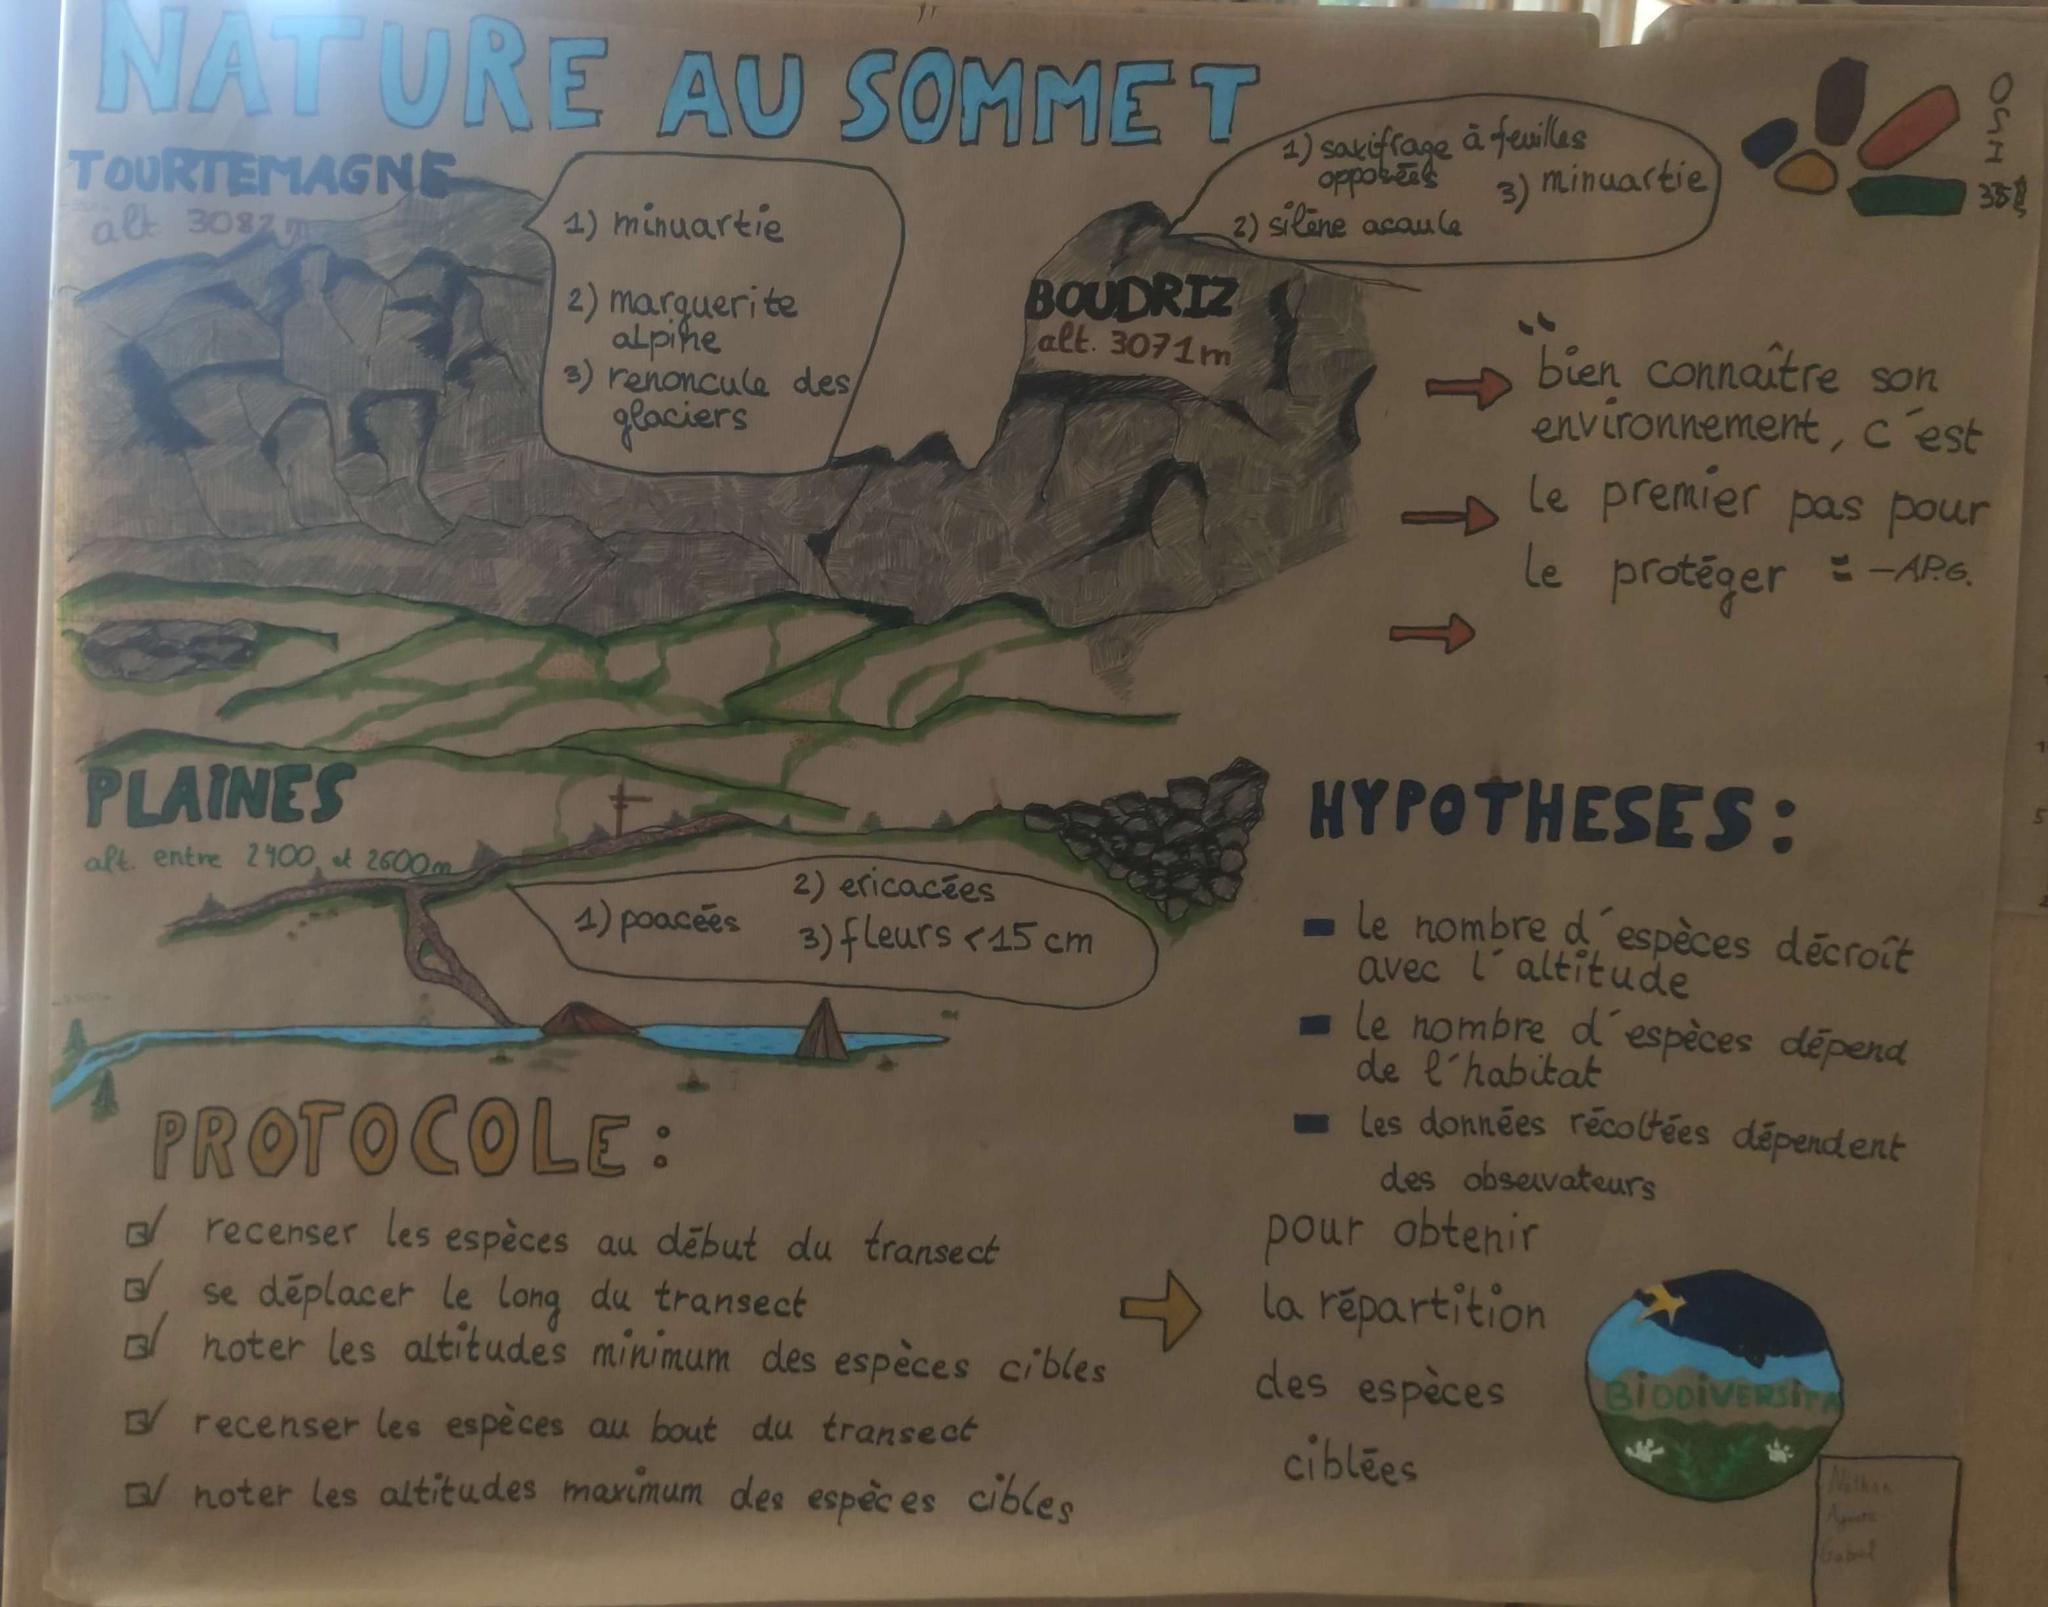 NATURE AU SOMMET
TOURTEMAGNE
alt 3082 m
1) minuartie
2) marguerite
alpine
3) renoncule des
glaciers
1) saxifrage à feuilles
opposées
2) silène acaule
3) minuartie
BOUDRIZ
alt. 3071m
OSI
"bien connaître son
environnement, c'est
le premier pas pour
le protéger" -AP.G.
PLAINES
alt. entre 2400 et 2600m
1) poacées
2) ericacées
3) fleurs <15 cm
HYPOTHESES:
- le nombre d'espèces décroît
avec l'altitude
- le nombre d'espèces dépend
de l'habitat
- les données récoltées dépendent
des observateurs
PROTOCOLE:
recenser les espèces au début du transect
se déplacer le long du transect
noter les altitudes minimum des espèces cibles
recenser les espèces au bout du transect
noter les altitudes maximum des espèces cibles
pour obtenir
la répartition
des espèces
ciblées
BIODIVERSITA
Nathan
Gabriel